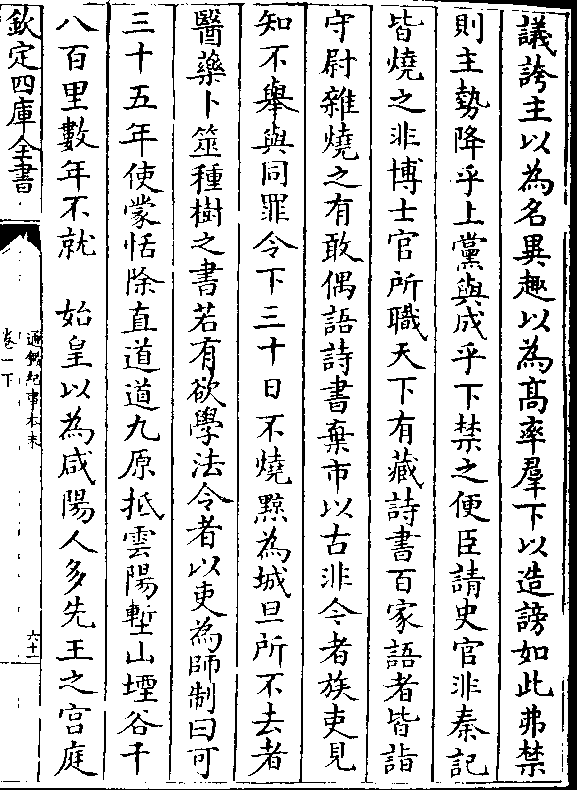 議誇主以為名異趣以為髙率羣下以造謗如此弗禁
則主勢降乎上黨與成乎下禁之便臣請史官非秦記
皆燒之非博士官所職天下有藏詩書百家語者皆詣
守尉雜燒之有敢偶語詩書棄市以古非今者族吏見
知不舉與同罪令下三十日不燒黥為城旦所不去者
醫藥卜筮種樹之書若有欲學法令者以吏為師制曰可
三十五年使蒙恬除直道道九原抵雲陽塹山堙谷千
八百里數年不就　始皇以為咸陽人多先王之宫庭
欽定四庫全書
通鑑紀事本末
卷一下
六十一